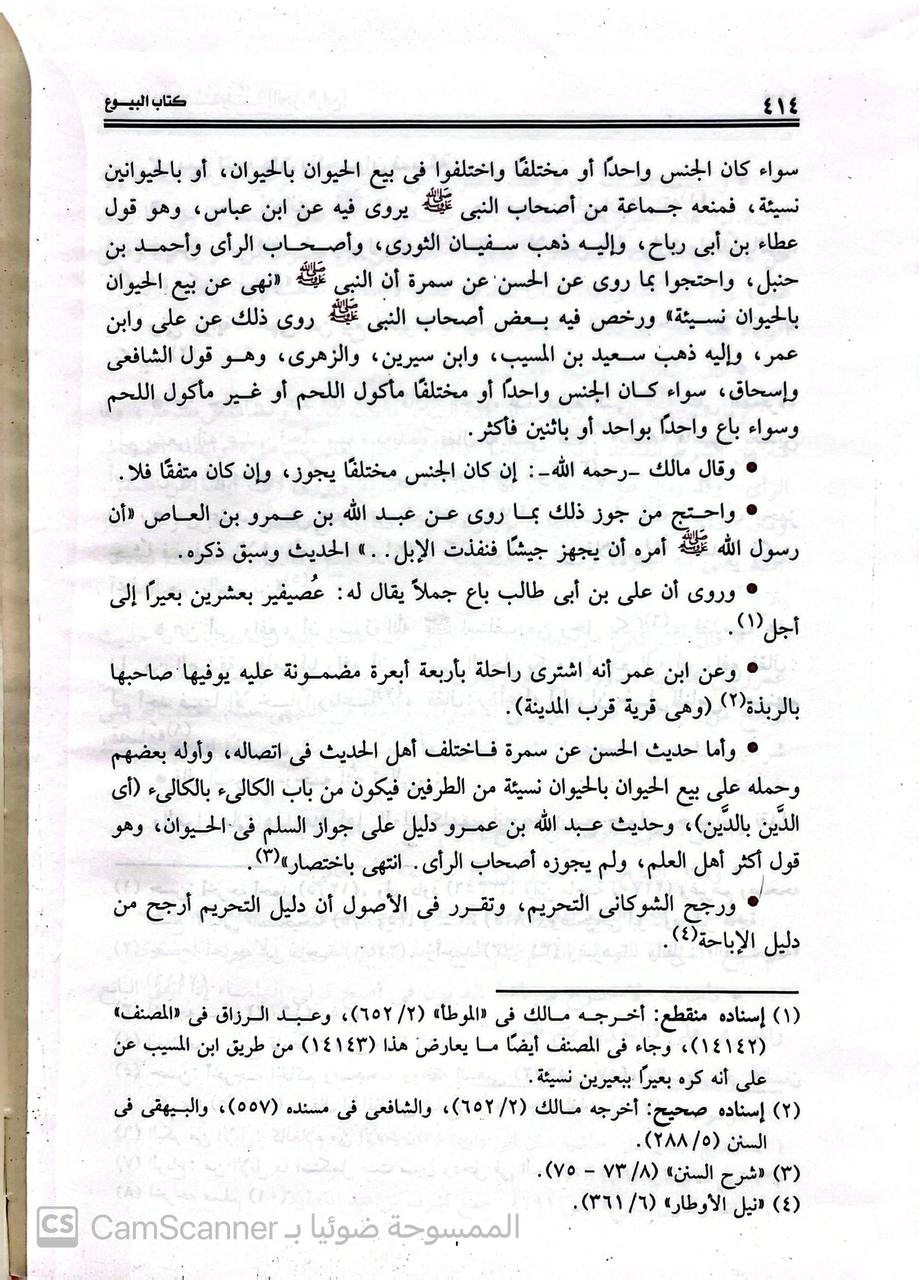 ٤١٤ كتاب البيوع
سواء كان الجنس واحدًا أو مختلفًا واختلفوا فى بيع الحيوان بالحيوان، أو بالحيوانين
نسيئة، فمنعه جماعة من أصحاب النبى ﷺ يروى فيه عن ابن عباس، وهو قول
عطاء بن أبى رباح، وإليه ذهب سفيان الثورى، وأصحاب الرأى وأحمد بن
حنبل، واحتجوا بما روى عن الحسن عن سمرة أن النبى ﷺ «نهى عن بيع الحيوان
بالحيوان نسيئة» ورخص فيه بعض أصحاب النبى ﷺ روى ذلك عن على وابن
عمر، وإليه ذهب سعيد بن المسيب، وابن سيرين، والزهرى، وهو قول الشافعى
وإسحاق، سواء كان الجنس واحدًا أو مختلفًا مأكول اللحم أو غير مأكول اللحم
وسواء باع واحدًا بواحد أو باثنين فأكثر.
• وقال مالك -رحمه الله-: إن كان الجنس مختلفًا يجوز، وإن كان متفقًا فلا.
• واحتج من جوز ذلك بما روى عن عبد الله بن عمرو بن العاص «أن
رسول الله ﷺ أمره أن يجهز جيشًا فنفذت الإبل..» الحديث وسبق ذكره.
• وروى أن على بن أبى طالب باع جملاً يقال له: عُصيفير بعشرين بعيرًا إلى
أجل(١).
• وعن ابن عمر أنه اشترى راحلة بأربعة أبعرة مضمونة عليه يوفيها صاحبها
بالربذة(٢) (وهى قرية قرب المدينة).
• وأما حديث الحسن عن سمرة فاختلف أهل الحديث فى اتصاله، وأوله بعضهم
وحمله على بيع الحيوان بالحيوان نسيئة من الطرفين فيكون من باب الكالىء بالكالىء (أى
الدَّين بالدَّين)، وحديث عبد الله بن عمرو دليل على جواز السلم فى الحيوان، وهو
قول أكثر أهل العلم، ولم يجوزه أصحاب الرأى. انتهى باختصار»(٣).
• ورجح الشوكانى التحريم، وتقرر فى الأصول أن دليل التحريم أرجح من
دليل الإباحة(٤).
(١) إسناده منقطع: أخرجه مالك فى «الموطأ» (٢/ ٦٥٢)، وعبد الرزاق فى «المصنف»
(١٤١٤٢)، وجاء فى المصنف أيضًا ما يعارض هذا (١٤١٤٣) من طريق ابن المسيب عن
على أنه كره بعيرًا ببعيرين نسيئة.
(٢) إسناده صحيح: أخرجه مالك (٢/ ٦٥٢)، والشافعى فى مسنده (٥٥٧)، والبيهقى فى
السنن (٥/ ٢٨٨).
(٣) «شرح السنن» (٨/ ٧٣ - ٧٥).
(٤) «نيل الأوطار» (٦/ ٣٦١).
CS CamScanner الممسوحة ضوئيا بـ